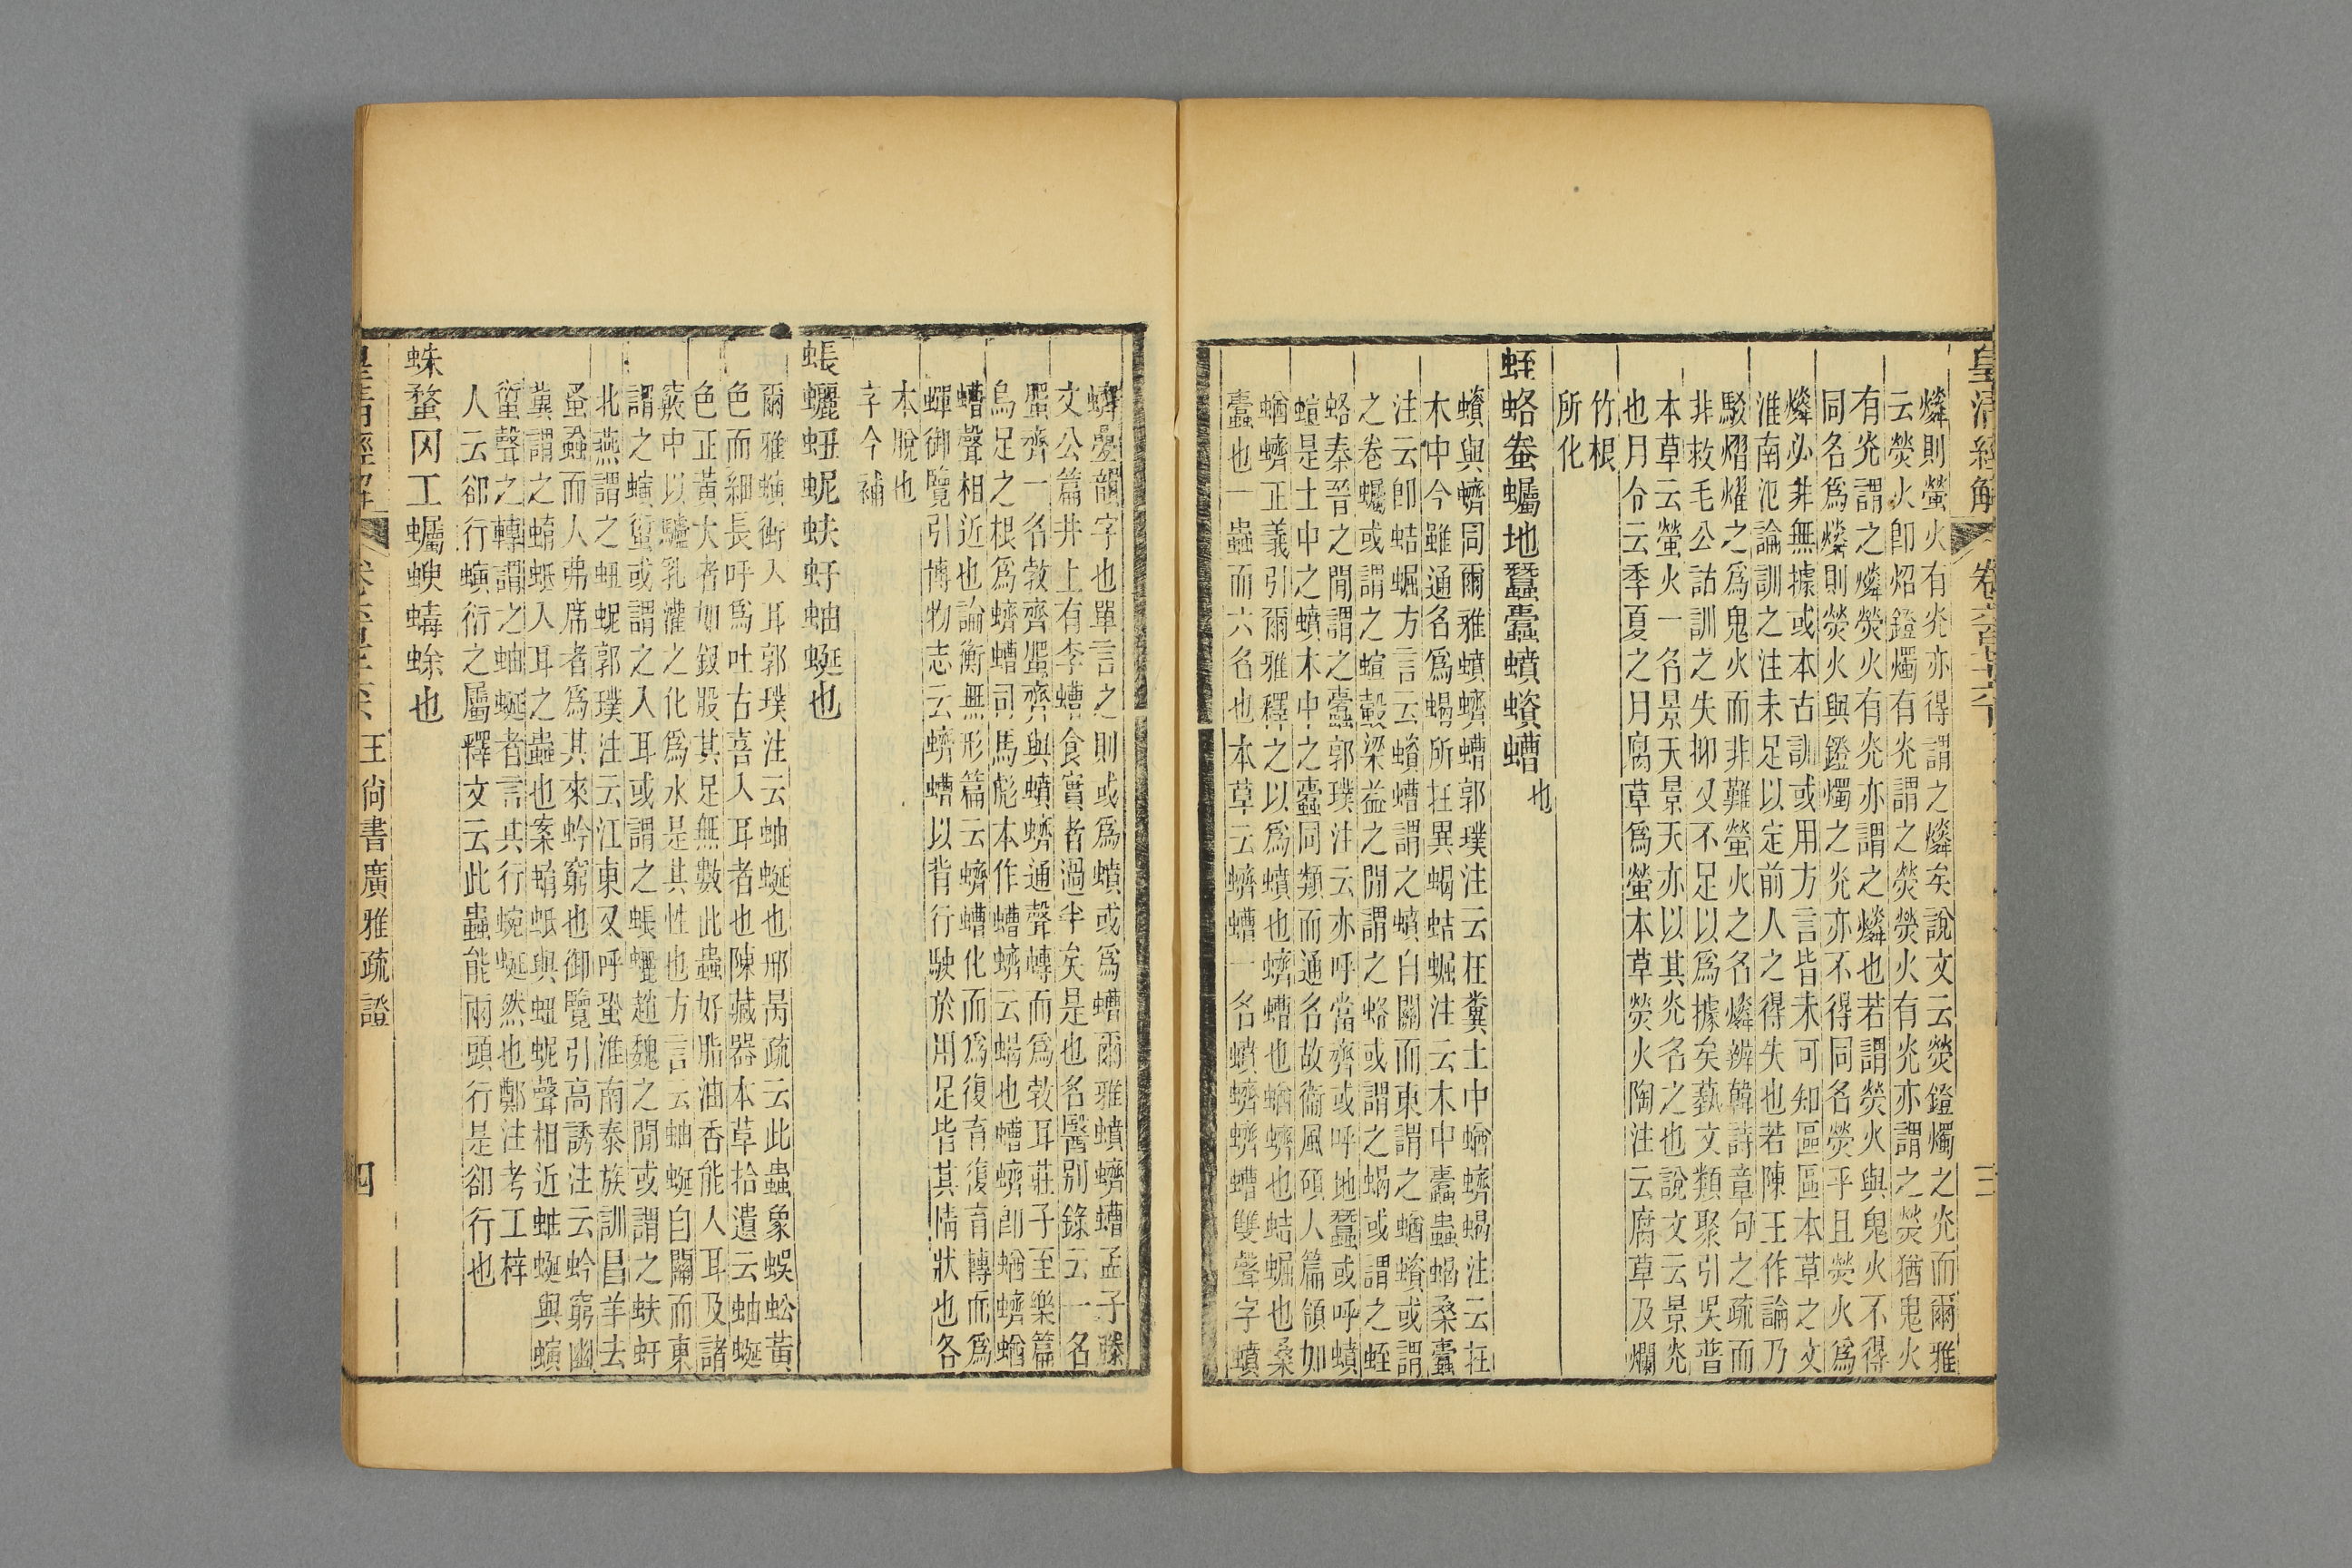 皇清經解
燐則螢火有光亦得謂之燐矣說文云熒鐙燭之光而爾雅
云熒火即炤鐙燭有光謂之熒熒火有光亦謂之熒猶鬼火
有光謂之燐熒火有光亦謂之燐也若謂熒火與鬼火不得
同名爲燐則熒火與鐙燭之光亦不得同名熒乎且熒火爲
燐必非無據或本古訓或用方言皆未可知區區本草之文
淮南氾論訓之注未足以定前人之得失也若陳王作論乃
駁熠燿之爲鬼火而非難螢火之名燐辨韓詩章句之疏而
非救毛公詁訓之失抑又不足以爲據矣藝文類聚引吳普
本草云螢火一名景天景天亦以其光名之也說文云景光
也月令云季夏之月腐草爲螢本草熒火陶注云腐草及爛
竹根
所化
蛭蛒𧌁蠾地蠶蠹蟦蠀螬也
蠀與蠐同爾雅蟦蠐螬郭璞注云在糞土中蝤蠐蝎注云在
木中今雖通名爲蝎所在異蝎蛣𧌑注云木中蠹蟲蝎桑蠹
注云即蛣𧌑方言云蠀螬謂之蟦自關而東謂之蝤蠀或謂
之卷蠾或謂之蝖瑴梁益之閒謂之蛒或謂之蝎或謂之蛭
蛒秦晉之閒謂之蠹郭璞注云亦呼當齊或呼地蠶或呼蟦
蝖是土中之蟦木中之蠹同類而通名故衞風碩人篇領如
蝤蠐正義引爾雅釋之以爲蟦也蠐螬也蝤蠐也蛣𧌑也桑
蠹也一蟲而六名也本草云蠐螬一名蟦蠐蠐螬雙聲字蟦
蠐疊韻字也單言之則或爲蟦或爲螬爾雅蟦蠐螬孟子滕
文公篇井上有李螬食實者過半矣是也名醫別錄云一名
蜰齊一名敦齊蜰齊與蟦蠐通聲轉而爲敦耳莊子至樂篇
烏足之根爲蠐螬司馬彪本作螬蠐云蝎也螬蠐即蝤蠐蝤
螬聲相近也論衡無形篇云蠐螬化而爲復育復育轉而爲
蟬御覽引博物志云蠐螬以背行駛於用足皆其情狀也各
本脫也
字今補
蛝䗫蚰蚭蚨虶蚰蜒也
爾雅螾衝入耳郭璞注云蚰蜒也邢昺疏云此蟲象蜈蚣黃
色而細長呼爲吐古喜入耳者也陳藏器本草拾遺云蚰蜒
色正黃大者如釵股其足無數此蟲好脂油香能入耳及諸
竅中以驢乳灌之化爲水是其性也方言云蚰蜒自關而東
謂之螾䖤或謂之入耳或謂之蜄䗫趙魏之閒或謂之蚨虶
北燕謂之蚰蚭郭璞注云江東又呼蛩淮南泰族訓昌羊去
蚤蝨而人弗席者爲其來蛉窮也御覽引高誘注云蛉窮幽
冀謂之蜻蚭入耳之蟲也案蜻蚭與蚰蚭聲相近蚰蜒與螾
䖤聲之轉謂之蚰蜒者言其行蜿蜒然也鄭注考工梓
人云卻行螾衍之屬釋文云此蟲能兩頭行是卻行也
蛛蝥罔工蠾蝓蟱蜍也
王尙書廣雅疏證
四